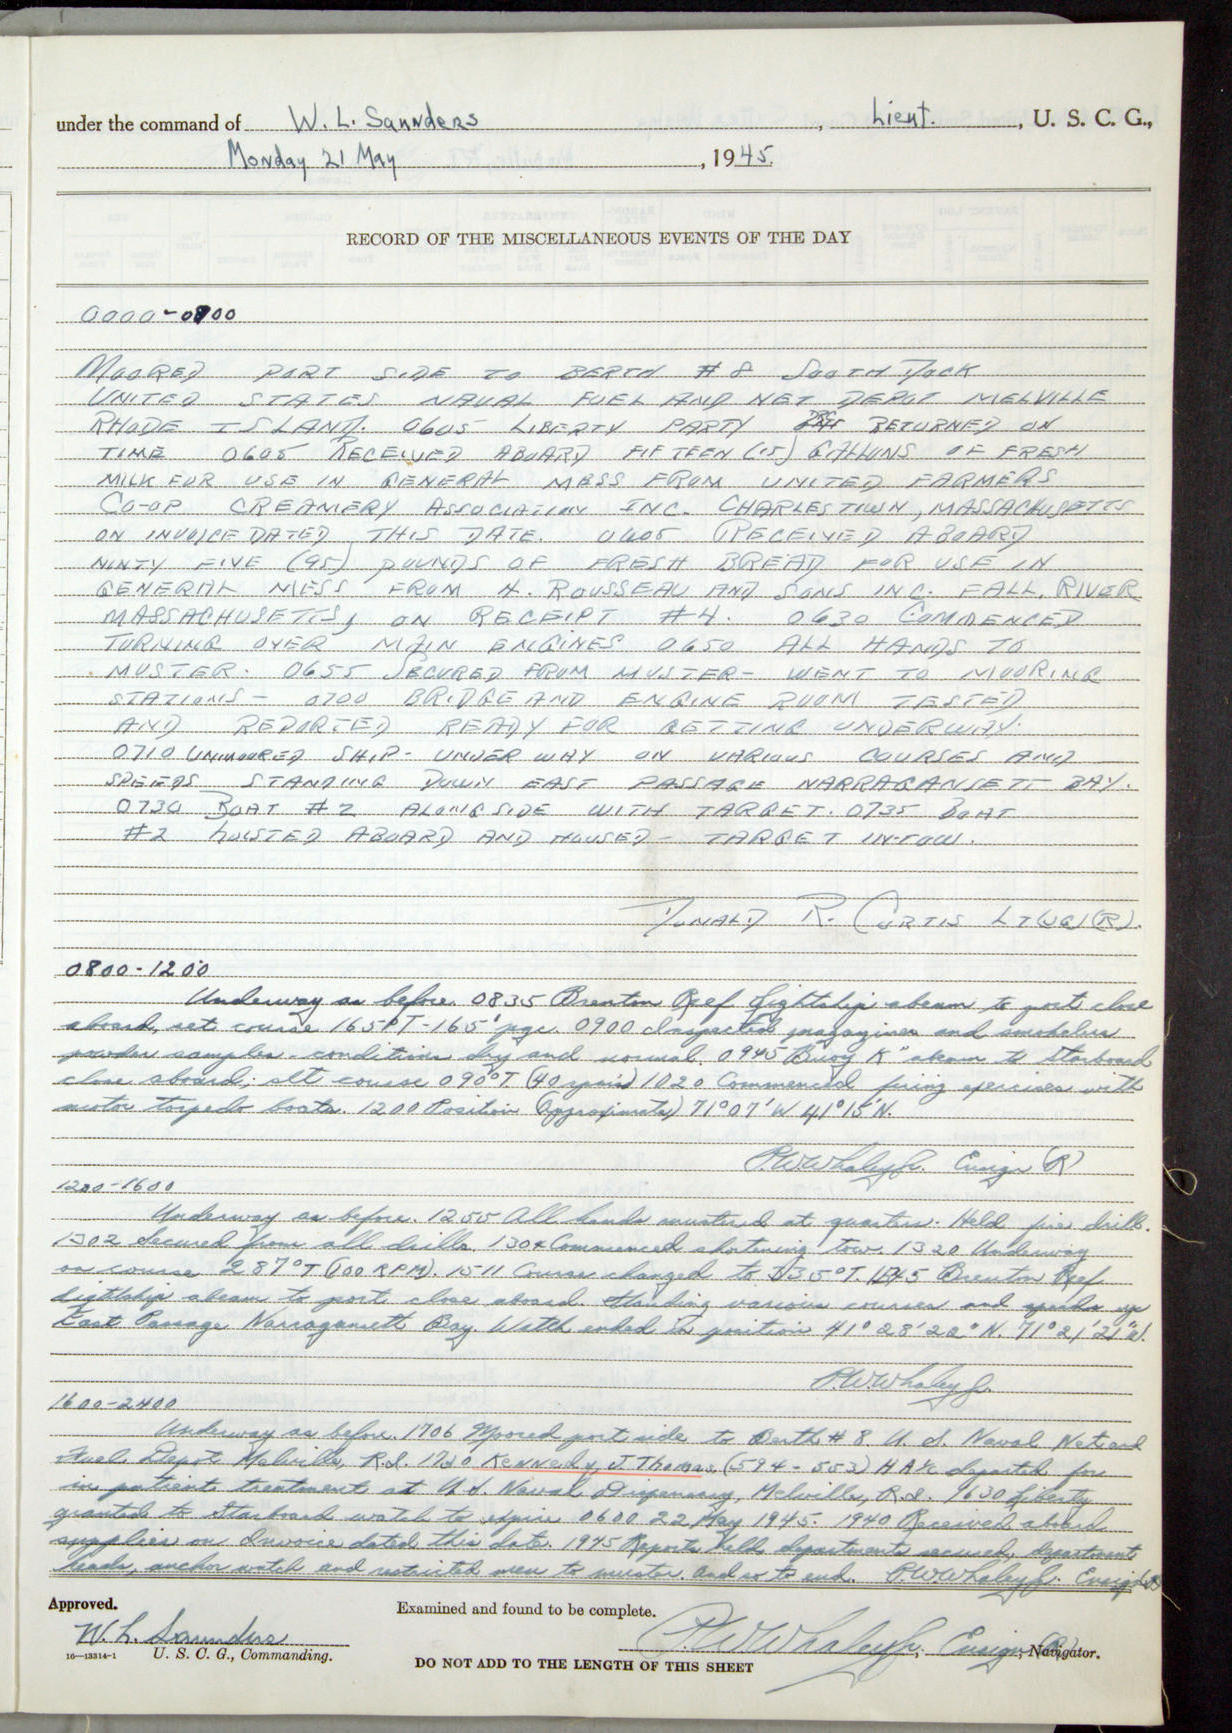 under the command of W. L. Saunders, Lieut., U. S. C. G.,
Monday 21 May, 1945.
RECORD OF THE MISCELLANEOUS EVENTS OF THE DAY
0000-0800
MOORED PORT SIDE TO BERTH #8 SOUTH DOCK
UNITED STATES NAVAL FUEL AND NET DEPOT MELVILLE
RHODE ISLAND. 0605 LIBERTY PARTY RETURNED ON
TIME 0605 RECEIVED ABOARD FIFTEEN (15) GALLONS OF FRESH
MILK FOR USE IN GENERAL MESS FROM UNITED FARMERS
CO-OP CREAMERY ASSOCIATION INC. CHARLESTOWN, MASSACHUSETTS
ON INVOICE DATED THIS DATE. 0605 RECEIVED ABOARD
NINTY FIVE (95) POUNDS OF FRESH BREAD FOR USE IN
GENERAL MESS FROM H. ROUSSEAU AND SONS INC. FALL RIVER
MASSACHUSETTS, ON RECEIPT #4. 0630 COMMENCED
TURNING OVER MAIN ENGINES 0650 ALL HANDS TO
MUSTER. 0655 SECURED FROM MUSTER- WENT TO MOORING
STATIONS- 0700 BRIDGE AND ENGINE ROOM TESTED
AND REPORTED READY FOR GETTING UNDERWAY.
0710 UNMOORED SHIP- UNDERWAY ON VARIOUS COURSES AND
SPEEDS STANDING DOWN EAST PASSAGE NARRAGANSETT BAY.
0730 BOAT #2 ALONGSIDE WITH TARGET. 0735 BOAT
#2 HOISTED ABOARD AND HOUSED- TARGET IN-TOW.
DONALD R. CURTIS LT(JG)(R).
0800-1200
Underway as before. 0835 Brenton Reef Lightship abeam to port close
aboard, set course 165°T-165° pgc. 0900 Inspected magazines and smokeless
powder samples - conditions dry and normal. 0945 Buoy "K" abeam to starboard
close aboard; alt course 090°T 1020 Commenced firing exercises with
motor torpedo boats. 1200 Position (approximate) 71°07'W 41°15'N.
P.W. Whaley Jr. Ensign (R)
1200-1600
Underway as before. 1255 All hands mustered at quarters. Held fire drill.
1302 Secured from all drills. 1304 Commenced shortening tow. 1320 Underway
on course 287°T (100 RPM). 1511 Course changed to 335°T. Brenton Reef
Lightship abeam to port close aboard. Standing various courses and speeds up
East Passage Narragansett Bay. Watch ended in position 41°28'22" N. 71°21'21"W.
P.W. Whaley Jr.
1600-2400
Underway as before. 1706 Moored port side to Berth #8 U. S. Naval Net and
Fuel Depot Melville, R.I. 1720 Kennedy, J. Thomas, (594-553) HA1c departed for
in patient treatment at U.S. Naval Dispensary, Melville, R.I. 1630 Liberty
granted to Starboard watch to expire 0600 22 May 1945. 1940 Received aboard
supplies on Invoice dated this date. 1945 Reports held departments secured, department
heads, anchor watch and restricted men to muster. And so to end. P.W. Whaley Jr. Ensign (R)
Approved.
Examined and found to be complete.
W. L. Saunders
U. S. C. G., Commanding.
P.W. Whaley Jr., Ensign (R), Navigator.
16—13314-1
DO NOT ADD TO THE LENGTH OF THIS SHEET